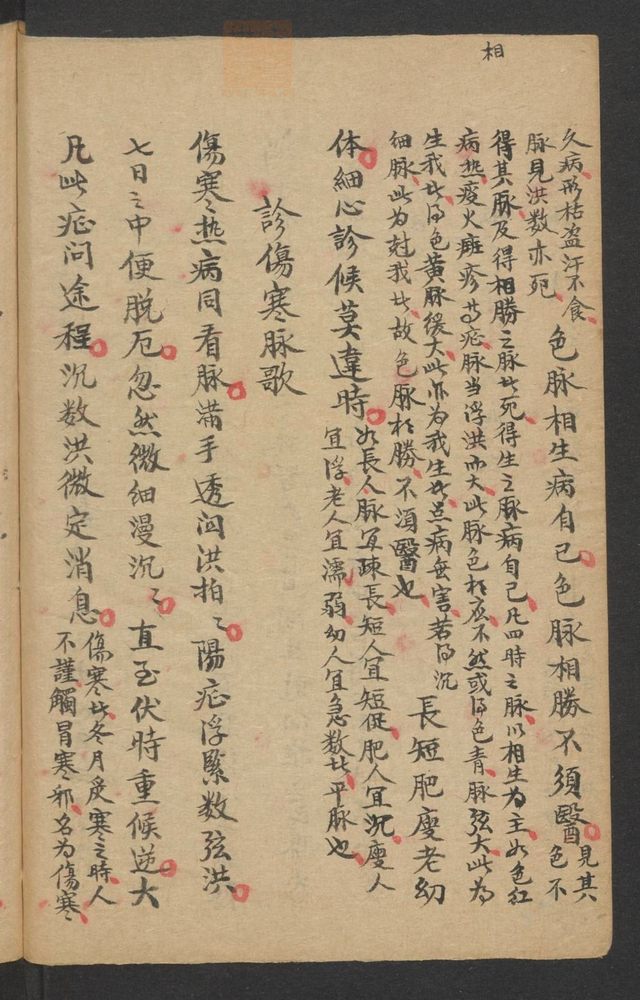 相
久病形枯盗汗不食
脉見洪数亦死
色脉相生病自己色脉相勝不須醫
見其
色不
得其脉及得相勝之脉此死得生之脉病自己凡四時之脉以相生为主如色红
病热疫火癍疹等症脉当浮洪而大此脉色相應不然或得色青脉弦大此为
生我此得色黄脉缓大此亦为我生此虽病無害若得沉
细脉此为尅我此故色脉相勝不須醫也
長短肥瘦老幼
体細心診候莫違時
如長人脉宜疎長短人宜短促肥人宜沉瘦人
宜浮老人宜濡弱幼人宜急数此平脉也
診傷寒脉歌
傷寒热病同看脉满手透闷洪拍ミ陽症浮緊数弦洪
七日之中便脱厄忽然微細漫沉ミ直至伏時重候逆大
凡此症问途程沉数洪微定消息
傷寒此冬月受寒之時人
不謹觸冒寒邪名为傷寒